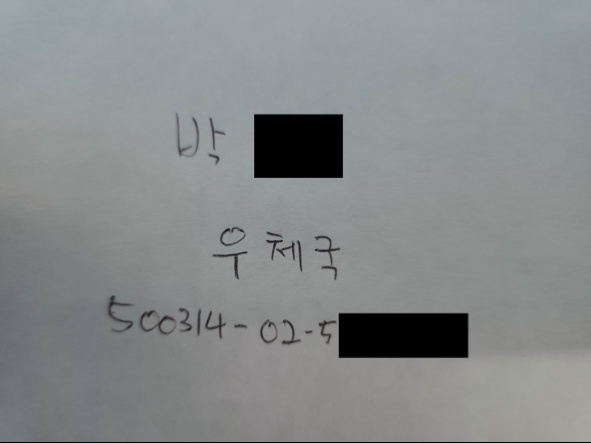 박
우체국
500314-02-5